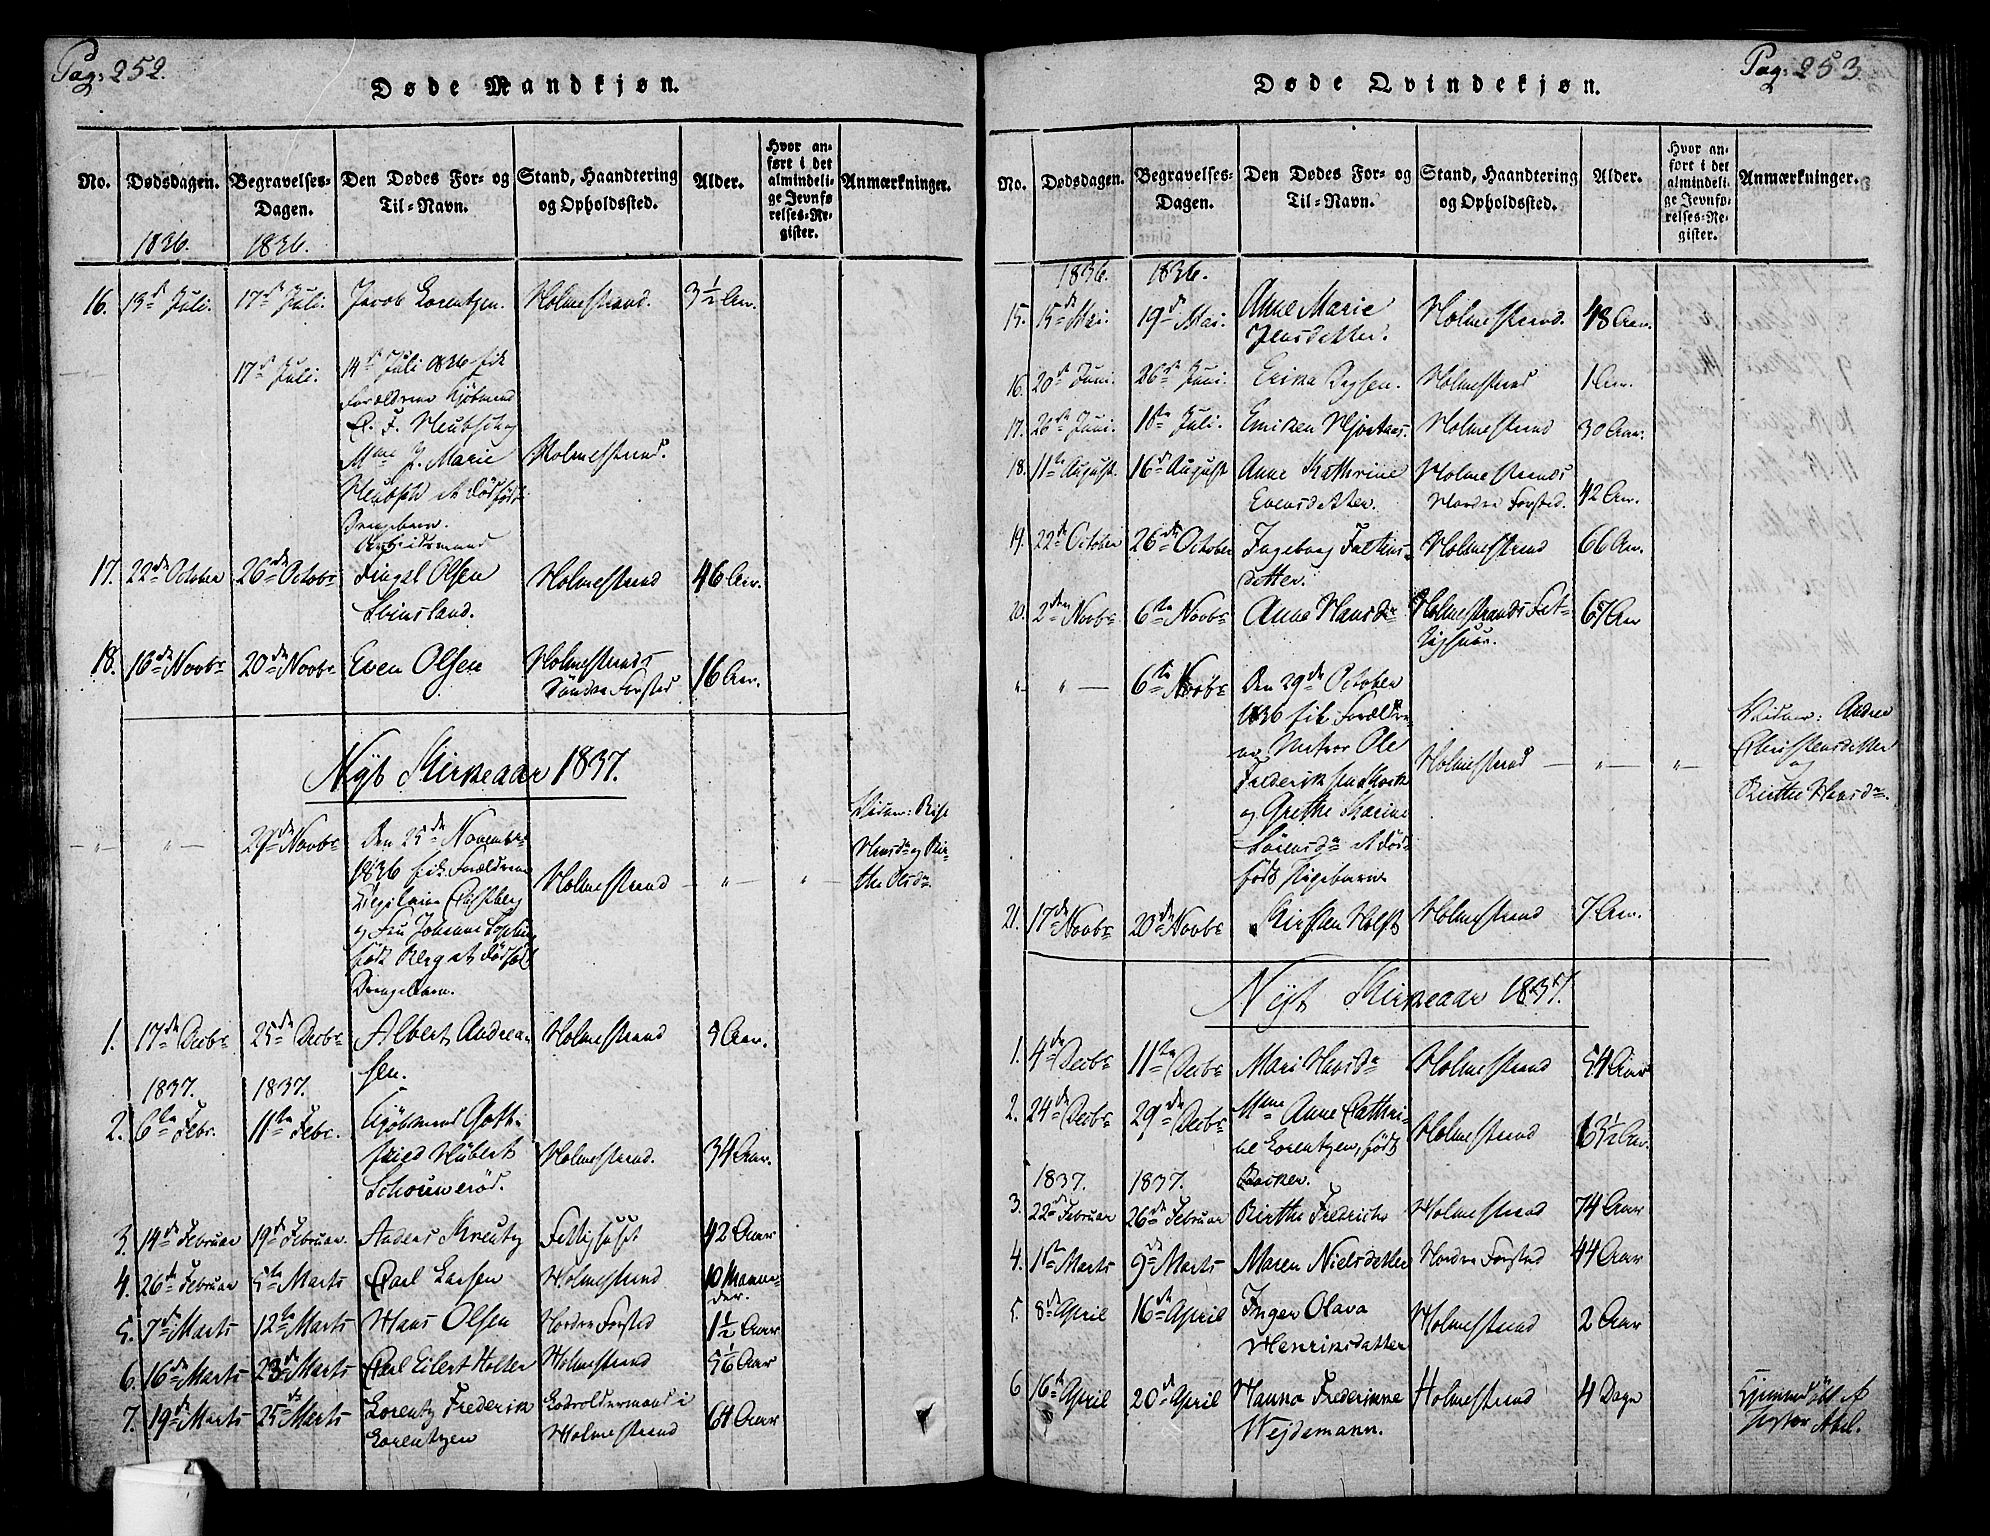 Pag: 252.
Døde Mandkjøn.
No.
Dødsdagen.
Begravelses-
Dagen.
Den Dødes For- og
Til-Navn.
Stand, Haandtering
og Opholdssted.
Alder.
Hvor an-
ført i det
almindeli-
ge Jevnfø-
relses-Re-
gister.
Anmærkninger.
1836. 1836.
16. 13de Juli. 17de Juli. Jacob Lorentzen. Holmestrand. 3½ Aar.
17de Juli. 14de Juli 1836 fik
Forældrene Kjöbmand
Mme J. Marie Holmestrand.
Dödfödt
Drengebarn.
Arbeidsmand
17. 22de October 26de Octobr Olsen Holmestrand 46 Aar.
18. 16de Novbr 20de Novbr Even Olsen Holmestrands 16 Aar.
Söndre Forsted
Nyt Kirkeaar 1837.
27de Novbr Den 25de November
1836 fik Forældrene Holmestrand
og Fru Johanne
födt Berg et Dödfödt
Drengebarn.
Hansdr og Bir-
the Olsdr
1. 17de Decbr 25de Decbr Albert Andrea- Holmestrand 5 Aar.
sen.
1837. 1837.
2. 6te Febr. 11te Febr. Kjöbmand Gott-
fried Hübert Holmestrand. 34 Aar.
Schouweröd.
3. 14de Februar 19de Februar. Anders Kreutz Fattighuset 42 Aar
4. 26de Februar 5te Marts Carl Larsen Holmestrand 10 Maane-
der.
5. 7de Marts 12te Marts Hans Olsen Nordre Forsted 1½ Aar
6. 16de Marts 23de Marts Carl Eilert Holter Holmestrand Aar
7. 19de Marts 25de Marts Lorentz Frederik Eedsvoldsmand i 64 Aar
Lorentzen Holmestrand
Pag: 253.
Døde Qvindekjøn.
No.
Dødsdagen.
Begravelses-
Dagen.
Den Dødes For- og
Til-Navn.
Stand, Haandtering
og Opholdssted.
Alder.
Hvor an-
ført i det
almindeli-
ge Jevnfø-
relses-Re-
gister.
Anmærkninger.
1836. 1836.
15. 15de Mai. 19de Mai. Anne Marie Holmestrand. 48 Aar.
Jensdatter.
16. 20de Juni. 26de Juni. Holmestrand 1 Aar.
17. 26de Juni. 10de Juli. Holmestrand 30 Aar.
18. 11te August. 16de August Anne Kathrine Holmestrands
Evensdatter. Nordre Forsted. 42 Aar.
19. 22de October 26de October Ingeborg Holmestrand 66 Aar.
datter.
20. 2den Novbr 6te Novbr Anne Hansdr Holmestrands Fat- 67 Aar
tighuus.
6te Novbr Den 29de October
1836 fik Foræld-
Ole Holmestrand
Frederiksen
og Grethe Karine
Sörensdr et Död-
födt Pigebarn
Vidner: Andrea
Christensdatter
og
Birthe Hansdr.
21. 17de Novbr 20de Novbr Kirsten Holst Holmestrand 7 Aar.
Nyt Kirkeaar 1837.
1. 4de Decbr 11te Decbr Mari Hansdr Holmestrand 54 Aar
2. 24de Decbr 29de Decbr Mme Anne Cathri-
ne Lorentzen, födt Holmestrand 63½ Aar.
1837. 1837. Backer.
3. 22de Februar 26de Februar Birthe Fredrichs Holmestrand 74 Aar
4. 1ste Marts 9de Marts Maren Nielsdatter Nordre Forsted 44 Aar
5. 8de April 16de April Inger Olava Holmestrand 2 Aar
Henriksdatter
6 16de April 20de April Hanna Frederikke Holmestrand 4 Dage Hjemmedöbt af
Wejdemann. Abel.